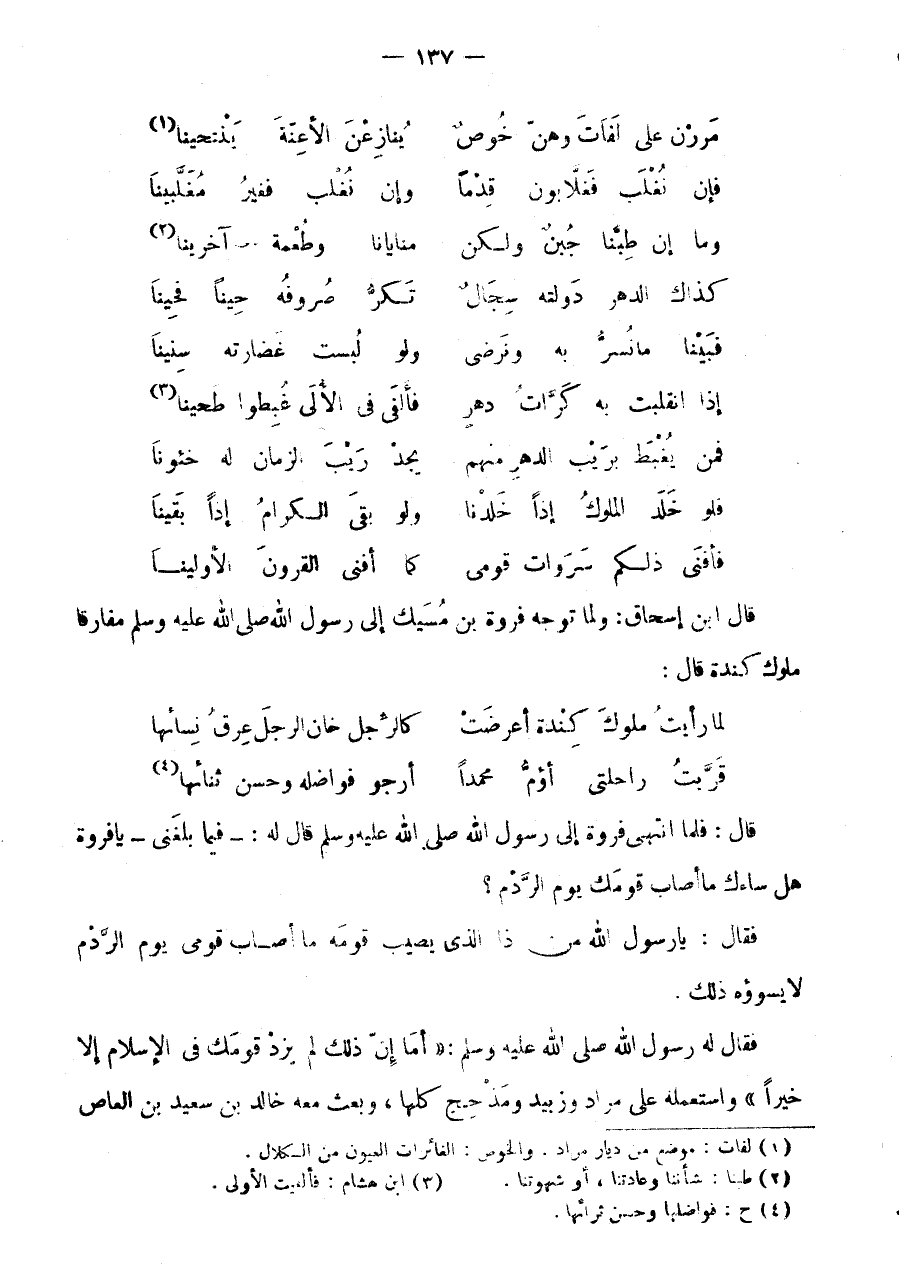 — ١٣٧ —
مَررْن على لَفَاتَ وهنّ خُوصٌ يُنازِعْنَ الأعِنّةَ يَنْتحينا(١)
فإن نُغْلَب فَغلَّابون قِدْماً وإن نُغْلب فغيرُ مُغَلَّبينَا
وما إن طِبُّنا جُبنٌ ولكن منايانا وطُعْمة آخرينا(٢)
كذاك الدهر دَولته سِجَالٌ تَكرُّ صُروفُه حِيناً فحِينَا
فبَيْنا مانُسرُّ به ونَرضى ولو لُبست غضارته سِنينَا
إذا انقلبت به كَرَّاتُ دهرٍ فألفَى فى الأُلَى غُبِطوا طحينا(٣)
فمن يُغْبَط برَيْب الدهرِ منهم يجدْ رَيْبَ الزمان له خئونا
فلو خَلَد الملوكُ إذاً خَلدْنا ولو بقىَ الكرامُ إذاً بقَينَا
فأفنَى ذلكم سَرَوات قومى كما أفنى القرونَ الأولينا
قال ابن إسحاق: ولما توجه فروة بن مُسَيك إلى رسول الله صلى الله عليه وسلم مفارقا
ملوك كندة قال :
لما رأيتُ ملوكَ كِنْدة أعرضَتْ كالرِّجل خان الرجلَ عِرقُ نِسائها
قرَّبتُ راحلتى أؤمُّ محمداً أرجو فواضله وحسن ثنائها(٤)
قال : فلما انتهى فروة إلى رسول الله صلى الله عليه وسلم قال له : – فيما بلغَنى – يافروة
هل ساءك ماأصاب قومَك يوم الرَّدْم ؟
فقال : يارسول الله من ذا الذى يصيب قومَه ما أصاب قومى يوم الرَّدْم
لايسوؤه ذلك .
فقال له رسول الله صلى الله عليه وسلم :« أمَا إنّ ذلك لم يزدْ قومَك فى الإسلام إلا
خيراً » واستعمله على مراد وزبيد ومَذْحِج كلها ، وبعث معه خالد بن سعيد بن العاص
(١) لفات : موضع من ديار مراد . والخوص : الغائرات العيون من الكلال .
(٢) طبنا : شأننا وعادتنا ، أو شهوتنا . (٣) ابن هشام : فألفيت الأولى .
(٤) ح : فواضلها وحسن ثرائها .